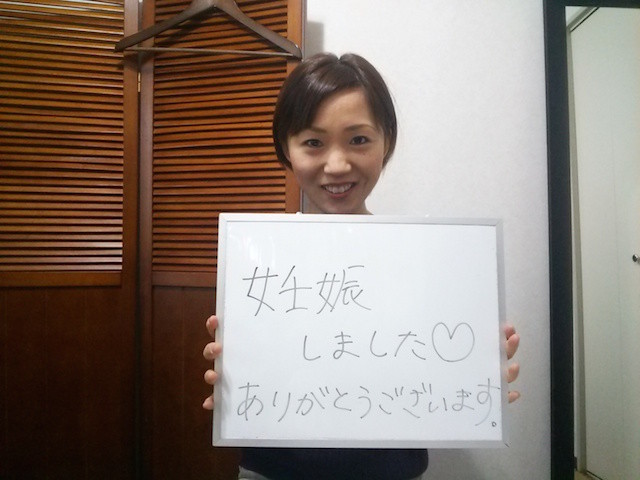 妊娠
しました♡
ありがとうございます。